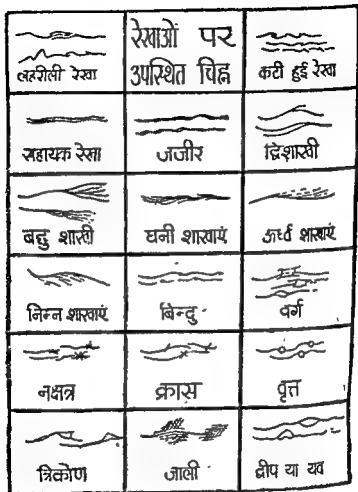 रेखाओं पर
उपस्थित चिह्न
लहरीली रेखा
कटी हुई रेखा
सहायक रेखा
जजीर
द्विशाखी
बहु शाखी
घनी शाखाएं
ऊर्ध्व शाखाएं
निम्न शाखाएं
बिन्दु
वर्ग
नक्षत्र
क्रास
वृत्त
त्रिकोण
जाली
द्वीप या यव